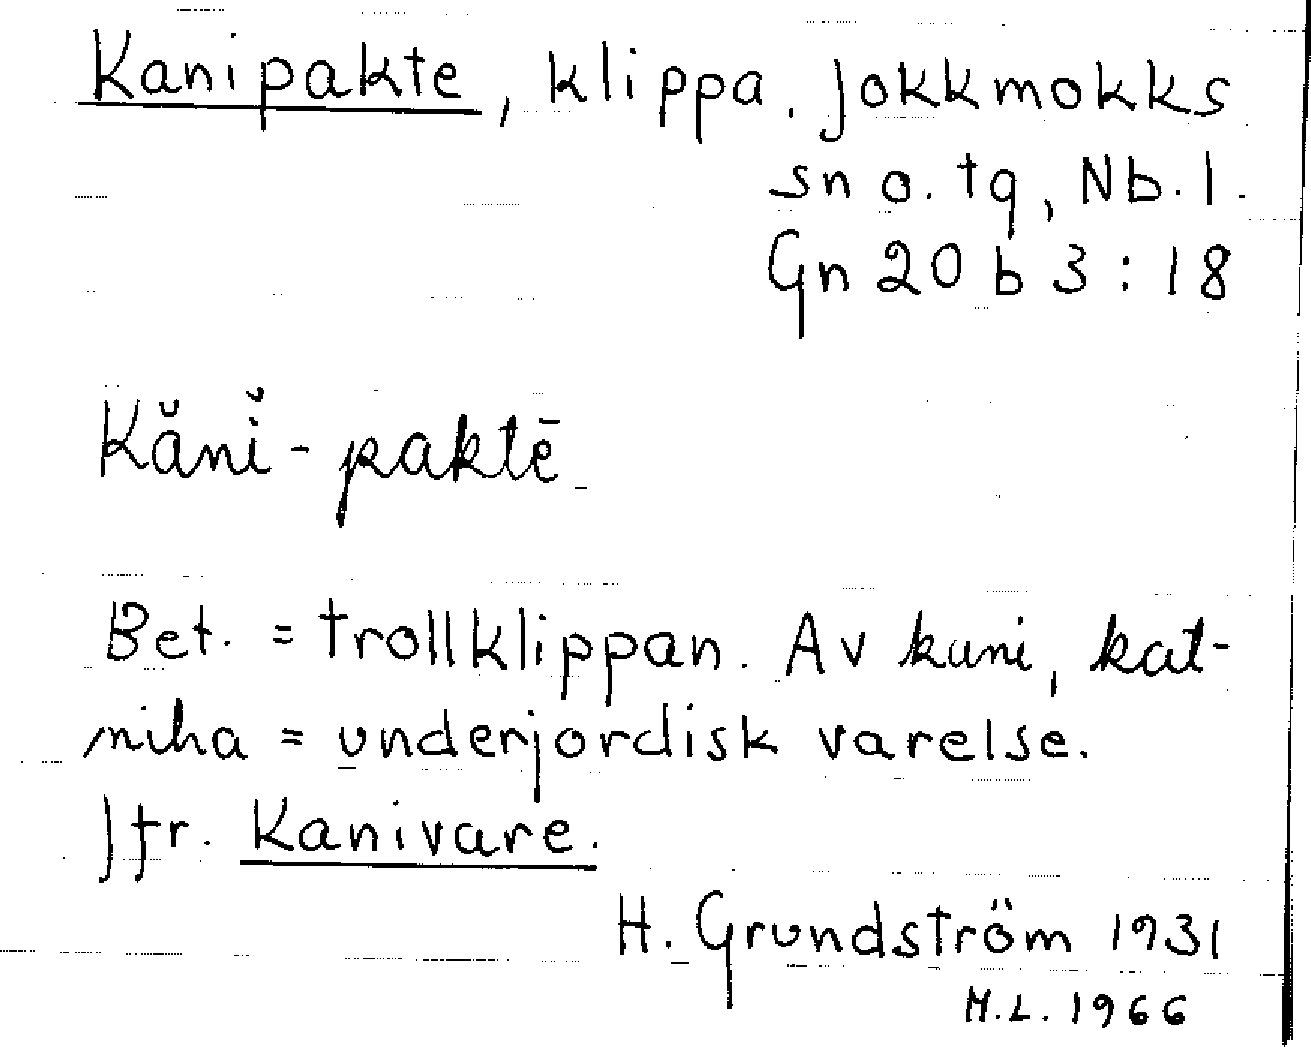 Kanipakte, klippa. Jokkmokks
sn o. tg, Nb. l.
Gn 20 b 3:18
Kănĭ-paktē
Bet. = trollklippan. Av kani, kat-
niha = underjordisk varelse.
Jfr. Kanivare.
H. Grundström 1931
M.L. 1966